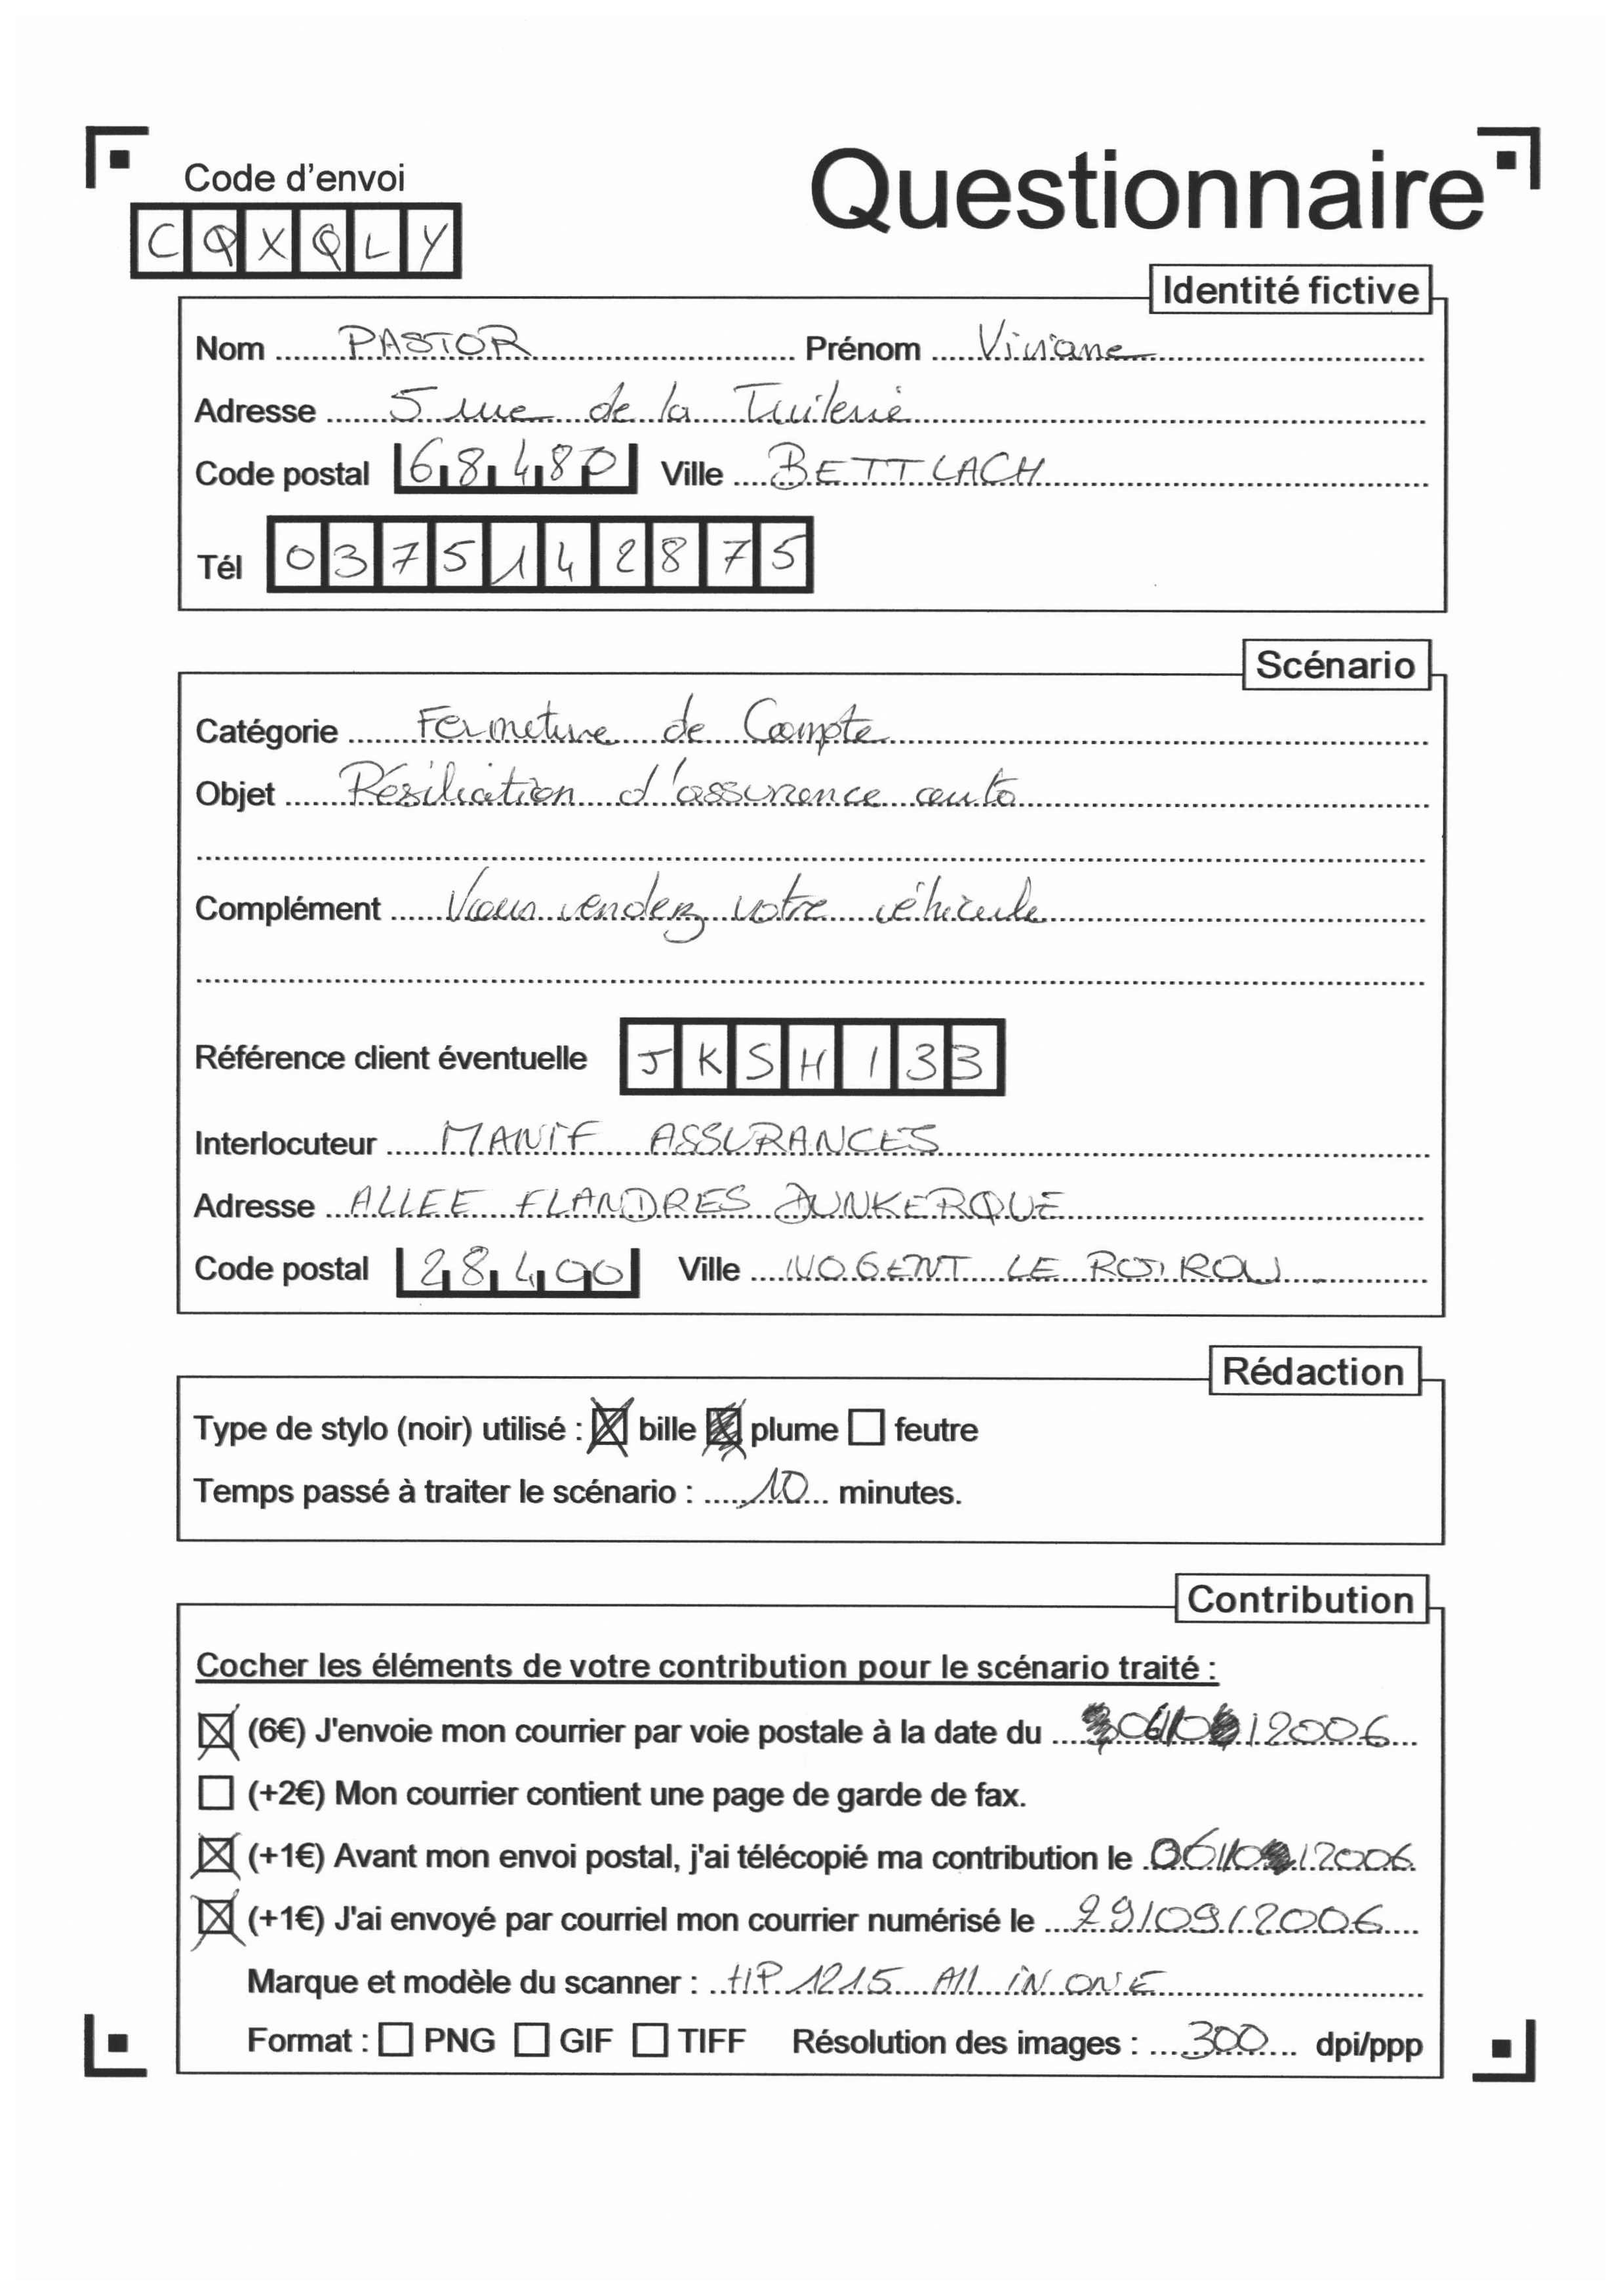 Code d'envoi
Questionnaire
CQXQLY
Identité fictive
Nom PASTOR Prénom Viviane
Adresse 5 rue de la Tuilerie
Code postal 68480 Ville BETTLACH
Tél 0375142875
Scénario
Catégorie Fermeture de Compte
Objet Résiliation d'assurance auto
Complément Vous vendez votre véhicule
Référence client éventuelle JKSH133
Interlocuteur MANIF ASSURANCES
Adresse ALLEE FLANDRES DUNKERQUE
Code postal 28400 Ville NOGENT LE
Rédaction
Type de stylo (noir) utilisé : bille plume feutre
Temps passé à traiter le scénario : 10 minutes.
Contribution
Cocher les éléments de votre contribution pour le scénario traité :
(6€) J'envoie mon courrier par voie postale à la date du
(+2€) Mon courrier contient une page de garde de fax.
(+1€) Avant mon envoi postal, j'ai télécopié ma contribution le
(+1€) J'ai envoyé par courriel mon courrier numérisé le 29/09/2006
Marque et modèle du scanner : HP 1215 All iN ONE
Format : PNG GIF TIFF Résolution des images : 300 dpi/ppp